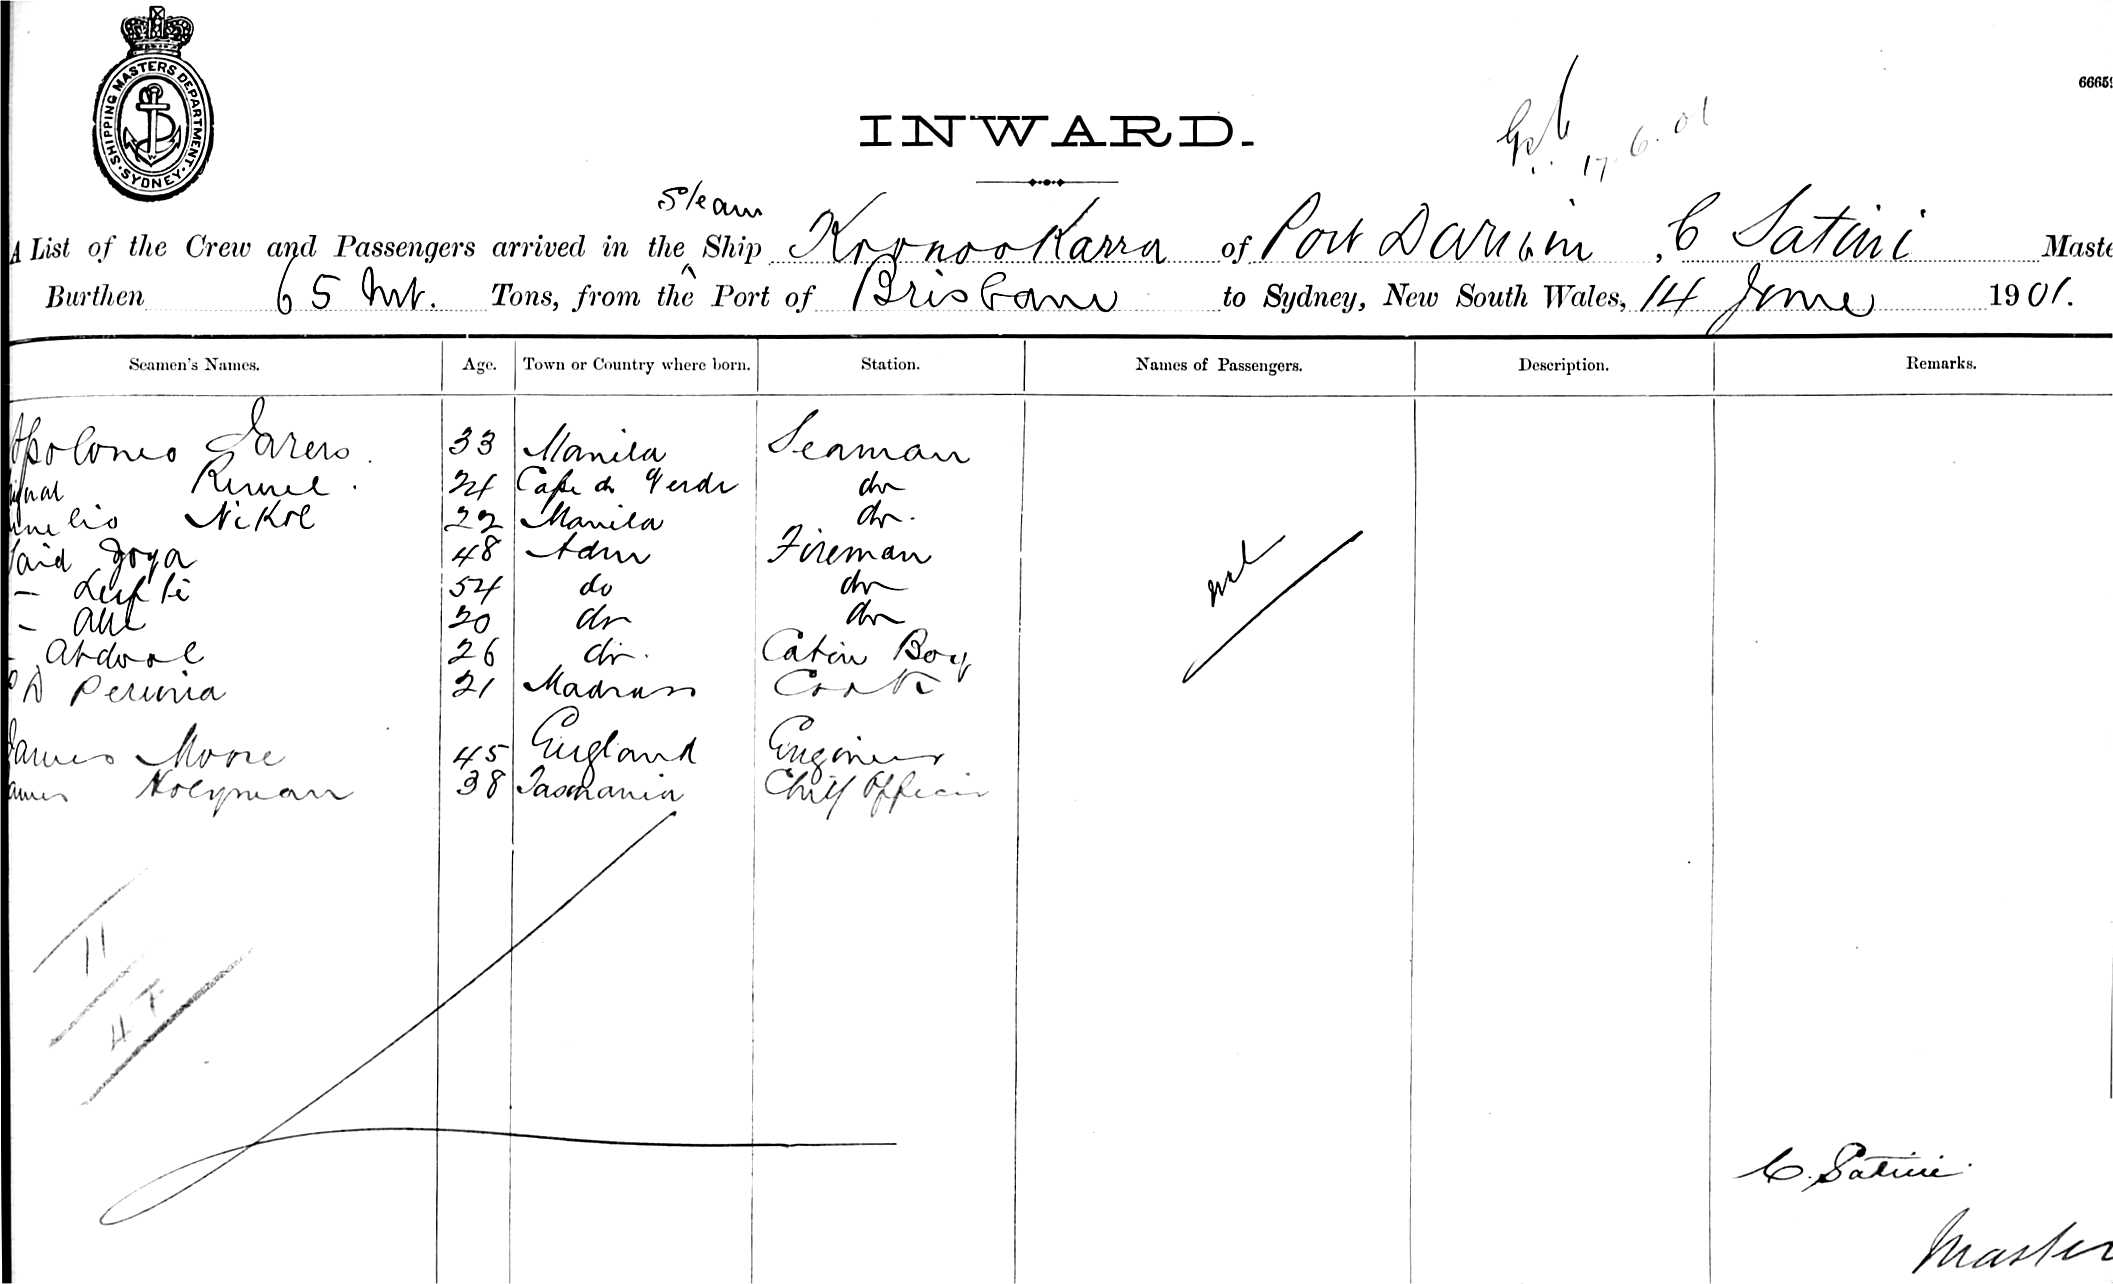 SHIPPING MASTERS DEPARTMENT.
SYDNEY.
6665
INWARD.
17.6.01
Steam
A List of the Crew and Passengers arrived in the Ship Koonookarra of Port Darwin, C Satini Maste
Burthen 65 Tons, from the Port of Brisbane to Sydney, New South Wales, 14 June 1901.
Seamen's Names. Age. Town or Country where born. Station. Names of Passengers. Description. Remarks.
33 Manila Seaman
24 Cape de Verde do
Nikol 22 Manila do.
Said 48 Adn Fireman
54 do do
20 do do
Abdool 26 do. Cabin Boy
21 Madrass Cook
James Moore 45 England Engineer
ames Holyman 38 Tasmania Chief Officer
nil
11
C. Satini.
Master